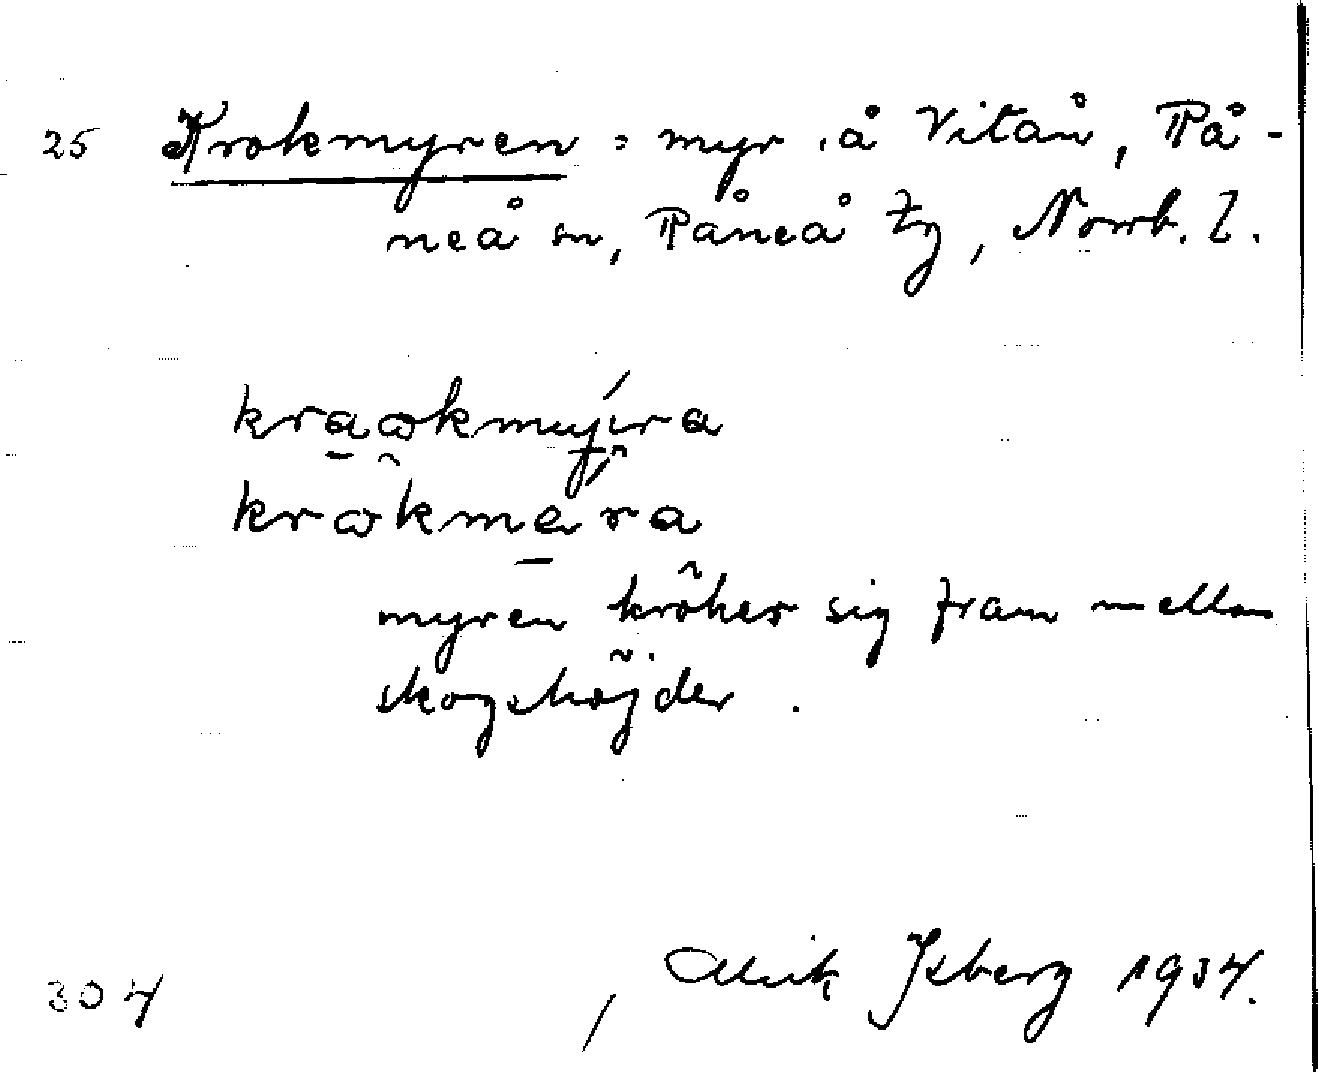 25 Krokmyren : myr å Vitån, Rå-
neå sn, Råneå tg, Norrb. l.
kraωkmyi̯ra
krωkmera
myren kröker sig fram mellan
skogshöjder.
304 Ulrik Isberg 1934.